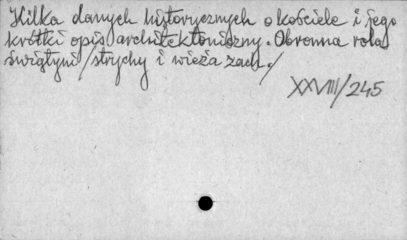 Kilka danych historycznych o kościele i jego
krótki opis architektoniczny. Obronna rola
świątyni /strychy i wieża zach./
XXVIII/245